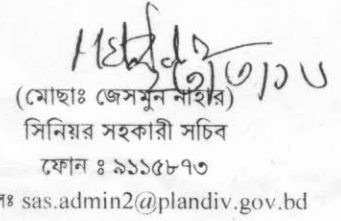 (মোছাঃ জেসমুন নাহার)
সিনিয়র সহকারী সচিব
ফোন ঃ ৯১১৫৮৭৩
sas.admin2@plandiv.gov.bd